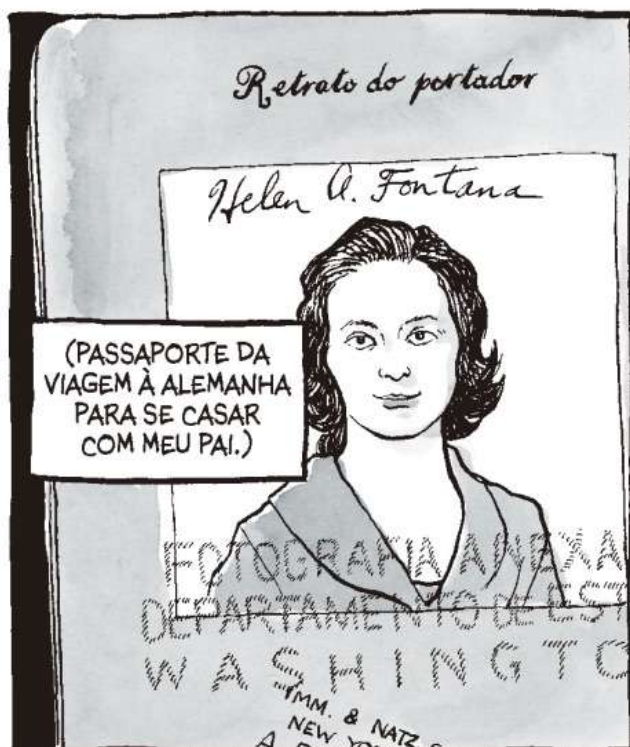 Retrato do portador
Helen A. Fontana
(PASSAPORTE DA
VIAGEM À ALEMANHA
PARA SE CASAR
COM MEU PAI.)
FOTOGRAFIA ANEXA
DEPARTAMENTO DE EST
WASHINGTO
IMM. & NATZ S
NEW YO